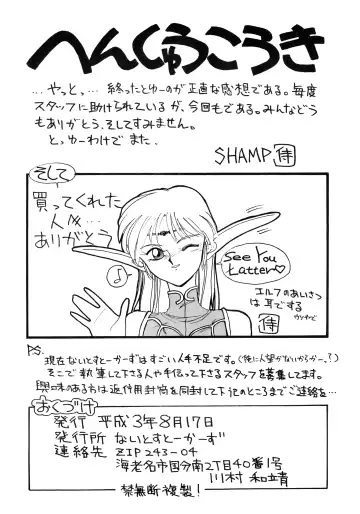 へんしゅうこうき
…やっと、… 終ったとゆーのが正直な感想である。毎度
スタッフに助けられているが、今回もである。みんなどう
もありがとう、そしてすみません。
と、ゆーわけで また、
SHAMP 侍
そして
買ってくれた
人々…
ありがとう
See You
Latter♡
♪
エルフのあいさつ
は耳でする
ウソやで
侍
P.S.
現在ないとすとーかーずはすごい人手不足です。(俺に人望がないからかー、?)
そこで執筆して下さる人や手伝って下さるスタッフを募集してます。
興味のある方は返信用封筒を同封して下記のところまでご連絡を…
おくづけ
発行 平成3年8月17日
発行所 ないとすとーかーず
連絡先 〒ZIP 243-04
海老名市国分南2丁目40番1号
川村 和立青
禁無断複製!